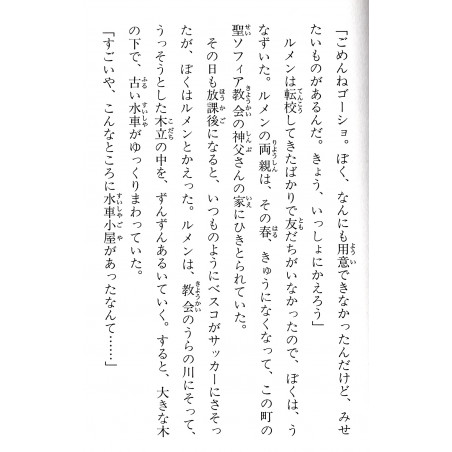 「ごめんねゴーショ。ぼく、なんにも用意できなかったんだけど、みせ
たいものがあるんだ。きょう、いっしょにかえろう」
ルメンは転校してきたばかりで友だちがいなかったので、ぼくは、う
なずいた。ルメンの両親は、その春、きゅうになくなって、この町の
聖ソフィア教会の神父さんの家にひきとられていた。
その日も放課後になると、いつものようにベスコがサッカーにさそっ
たが、ぼくはルメンとかえった。ルメンは、教会のうらの川にそって、
うっそうとした木立の中を、ずんずんあるいていく。すると、大きな木
の下で、古い水車がゆっくりまわっていた。
「すごいや、こんなところに水車小屋があったなんて……」